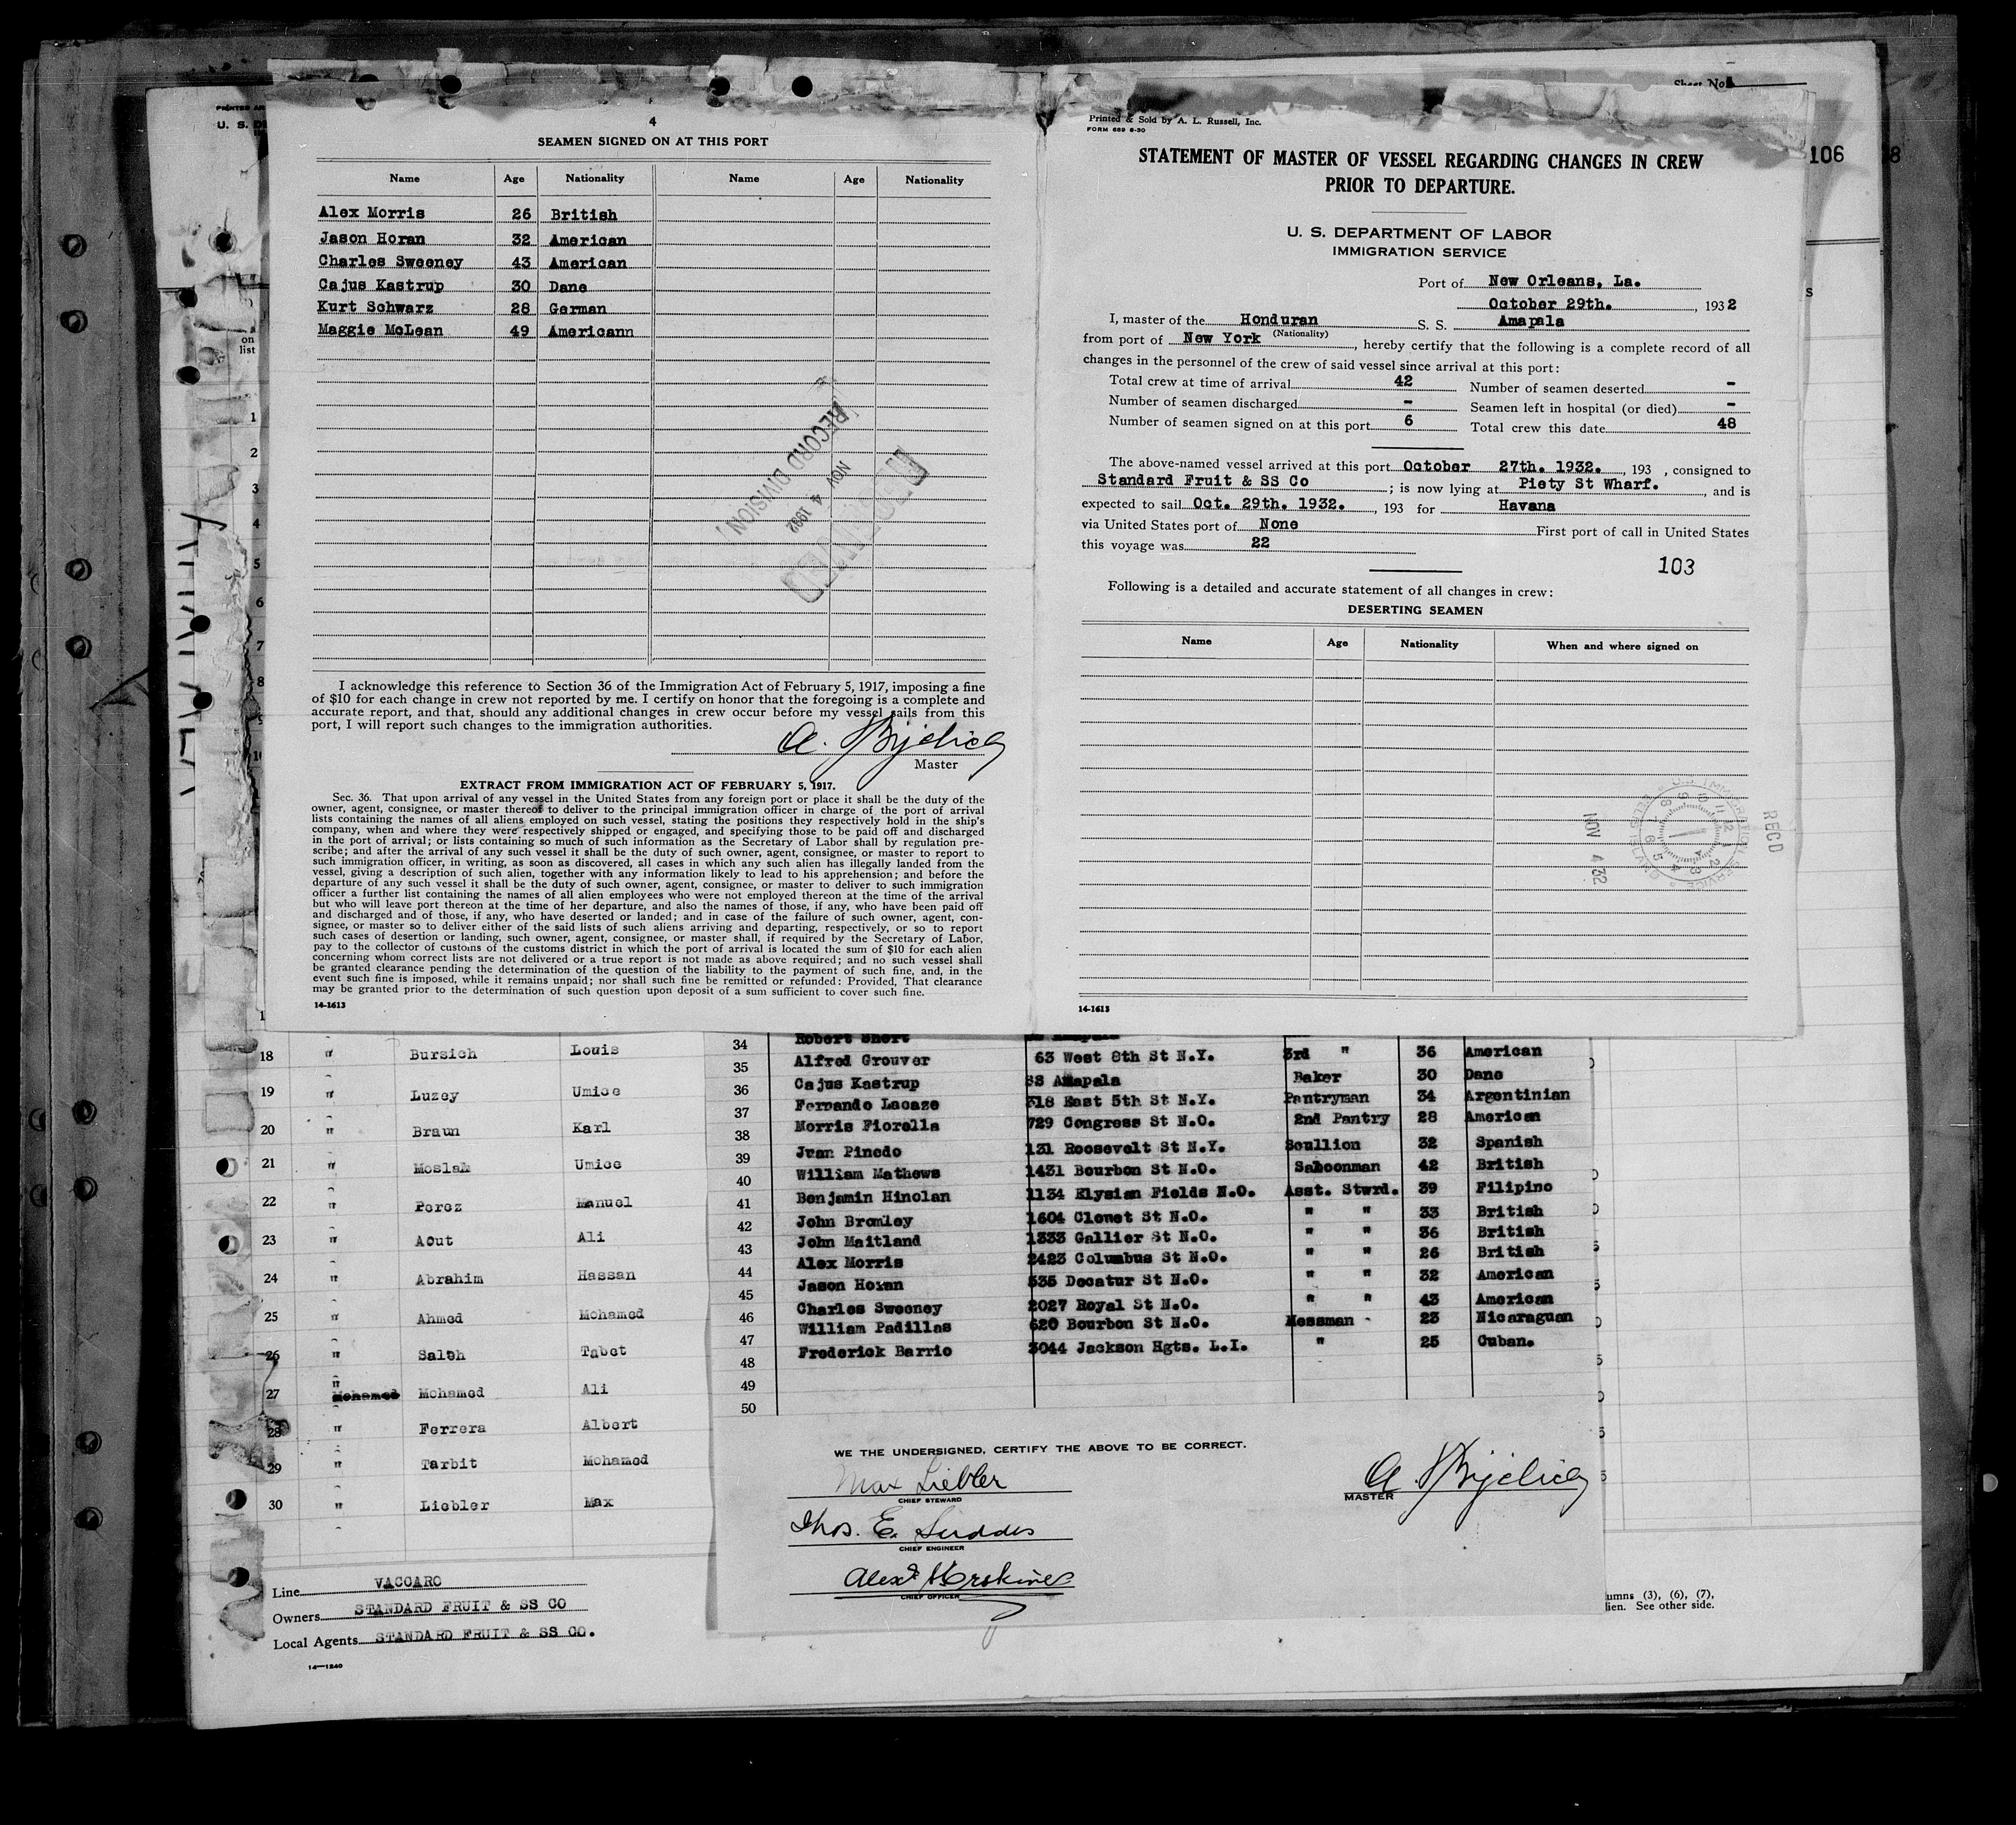 Sheet No.
106
8
4
SEAMEN SIGNED ON AT THIS PORT
Name Age Nationality Name Age Nationality
Alex Morris 26 British
Jason Horan 32 American
Charles Sweeney 43 American
Cajus Kastrup 30 Dane
Kurt Schwarz 28 German
Maggie McLean 49 Americann
RECORD DIVISION
NOV 4 1932
I acknowledge this reference to Section 36 of the Immigration Act of February 5, 1917, imposing a fine
of $10 for each change in crew not reported by me. I certify on honor that the foregoing is a complete and
accurate report, and that, should any additional changes in crew occur before my vessel sails from this
port, I will report such changes to the immigration authorities.
Master
EXTRACT FROM IMMIGRATION ACT OF FEBRUARY 5, 1917.
Sec. 36. That upon arrival of any vessel in the United States from any foreign port or place it shall be the duty of the
owner, agent, consignee, or master thereof to deliver to the principal immigration officer in charge of the port of arrival
lists containing the names of all aliens employed on such vessel, stating the positions they respectively hold in the ship's
company, when and where they were respectively shipped or engaged, and specifying those to be paid off and discharged
in the port of arrival; or lists containing so much of such information as the Secretary of Labor shall by regulation pre-
scribe; and after the arrival of any such vessel it shall be the duty of such owner, agent, consignee, or master to report to
such immigration officer, in writing, as soon as discovered, all cases in which any such alien has illegally landed from the
vessel, giving a description of such alien, together with any information likely to lead to his apprehension; and before the
departure of any such vessel it shall be the duty of such owner, agent, consignee, or master to deliver to such immigration
officer a further list containing the names of all alien employees who were not employed thereon at the time of the arrival
but who will leave port thereon at the time of her departure, and also the names of those, if any, who have been paid off
and discharged and of those, if any, who have deserted or landed; and in case of the failure of such owner, agent, con-
signee, or master so to deliver either of the said lists of such aliens arriving and departing, respectively, or so to report
such cases of desertion or landing, such owner, agent, consignee, or master shall, if required by the Secretary of Labor,
pay to the collector of customs of the customs district in which the port of arrival is located the sum of $10 for each alien
concerning whom correct lists are not delivered or a true report is not made as above required; and no such vessel shall
be granted clearance pending the determination of the question of the liability to the payment of such fine, and, in the
event such fine is imposed, while it remains unpaid; nor shall such fine be remitted or refunded: Provided, That clearance
may be granted prior to the determination of such question upon deposit of a sum sufficient to cover such fine.
14-1613
Printed & Sold by A. L. Russell, Inc.
FORM 689 6-30
STATEMENT OF MASTER OF VESSEL REGARDING CHANGES IN CREW
PRIOR TO DEPARTURE.
U. S. DEPARTMENT OF LABOR
IMMIGRATION SERVICE
Port of New Orleans, La.
October 29th. , 1932
I, master of the Honduran S. S. Amapala
(Nationality)
from port of New York , hereby certify that the following is a complete record of all
changes in the personnel of the crew of said vessel since arrival at this port:
Total crew at time of arrival 42 Number of seamen deserted -
Number of seamen discharged - Seamen left in hospital (or died) -
Number of seamen signed on at this port 6 Total crew this date 48
The above-named vessel arrived at this port October 27th. 1932. , 193 , consigned to
Standard Fruit & SS Co ; is now lying at Piety St Wharf. , and is
expected to sail Oct. 29th. 1932. , 193 for Havana
via United States port of None First port of call in United States
this voyage was 22
103
Following is a detailed and accurate statement of all changes in crew:
DESERTING SEAMEN
Name Age Nationality When and where signed on
RECD
NOV 4 32
14-1613
18 " Bursich Louis
19 " Luzey Umice
20 " Braun Karl
21 " Moslam Umice
22 " Perez Manuel
23 " Aout Ali
24 " Abrahim Hassan
25 " Ahmed Mohamed
26 " Saleh Tabet
27 " Mohamed Mohamed Ali
28 " Ferrera Albert
29 " Tarbit Mohamed
30 " Liebler Max
Line VACCARO
Owners STANDARD FRUIT & SS CO
Local Agents STANDARD FRUIT & SS CO.
14-1240
34 Robert Short SS Amapala
35 Alfred Grouver 63 West 8th St N.Y. 3rd " 36 American
36 Cajus Kastrup SS Amapala Baker 30 Dane
37 Fernando Lacaze 318 East 5th St N.Y. Pantryman 34 Argentinian
38 Morris Fiorella 729 Congress St N.O. 2nd Pantry 28 American
39 Juan Pinedo 131 Roosevelt St N.Y. Scullion 32 Spanish
40 William Mathews 1431 Bourbon St N.O. Saloonman 42 British
41 Benjamin Hinolan 1134 Elysian Fields N.O. Asst. Stwrd. 39 Filipino
42 John Bromley 1604 Clouet St N.O. " " 33 British
43 John Maitland 1333 Gallier St N.O. " " 36 British
44 Alex Morris 2423 Columbus St N.O. " " 26 British
45 Jason Horan 535 Decatur St N.O. " " 32 American
46 Charles Sweeney 2027 Royal St N.O. " " 43 American
47 William Padillas 620 Bourbon St N.O. Messman 23 Nicaraguan
48 Frederick Barrio 3044 Jackson Hgts. L.I. " 25 Cuban.
49
50
WE THE UNDERSIGNED, CERTIFY THE ABOVE TO BE CORRECT.
Max Liebler
CHIEF STEWARD
CHIEF ENGINEER
CHIEF OFFICER
MASTER
umns (3), (6), (7),
lien. See other side.